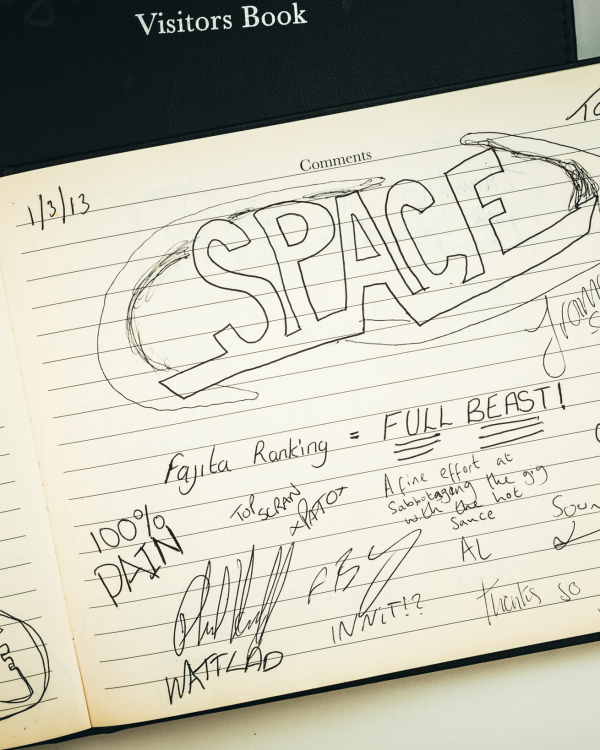 Visitors Book
Comments
1/3/13
SPACE
Fajita Ranking = FULL BEAST!
100%
PAIN
TOP SCRAN
A fine effort at
Sabbotaging the gig
with the hot
sauce
AL
INNIT!?
WATTLAD
thanks so